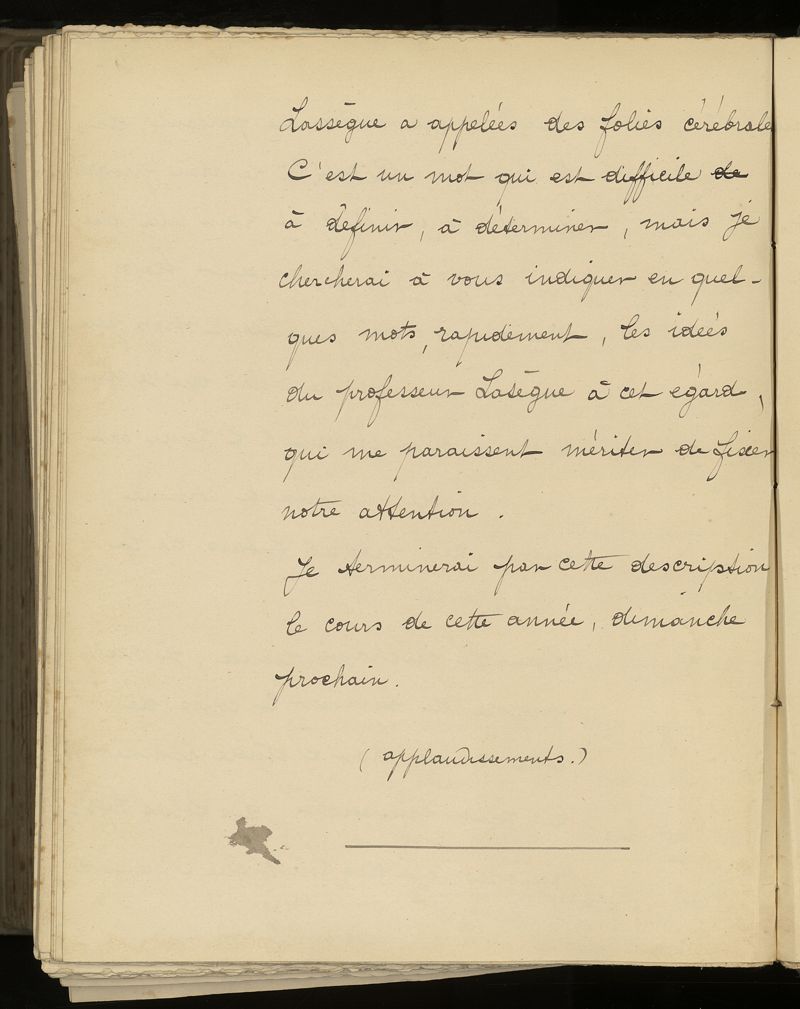 Lassègue a appelées des folies cérébrale
C'est un mot qui est difficile de
à définir, à déterminer, mais je
chercherai à vous indiquer en quel-
ques mots, rapidement, les idées
du professeur Lasègue à cet égard,
qui me paraissent mériter de fixer
notre attention.
Je terminerai par cette description
le cours de cette année, dimanche
prochain.
(applaudissements.)